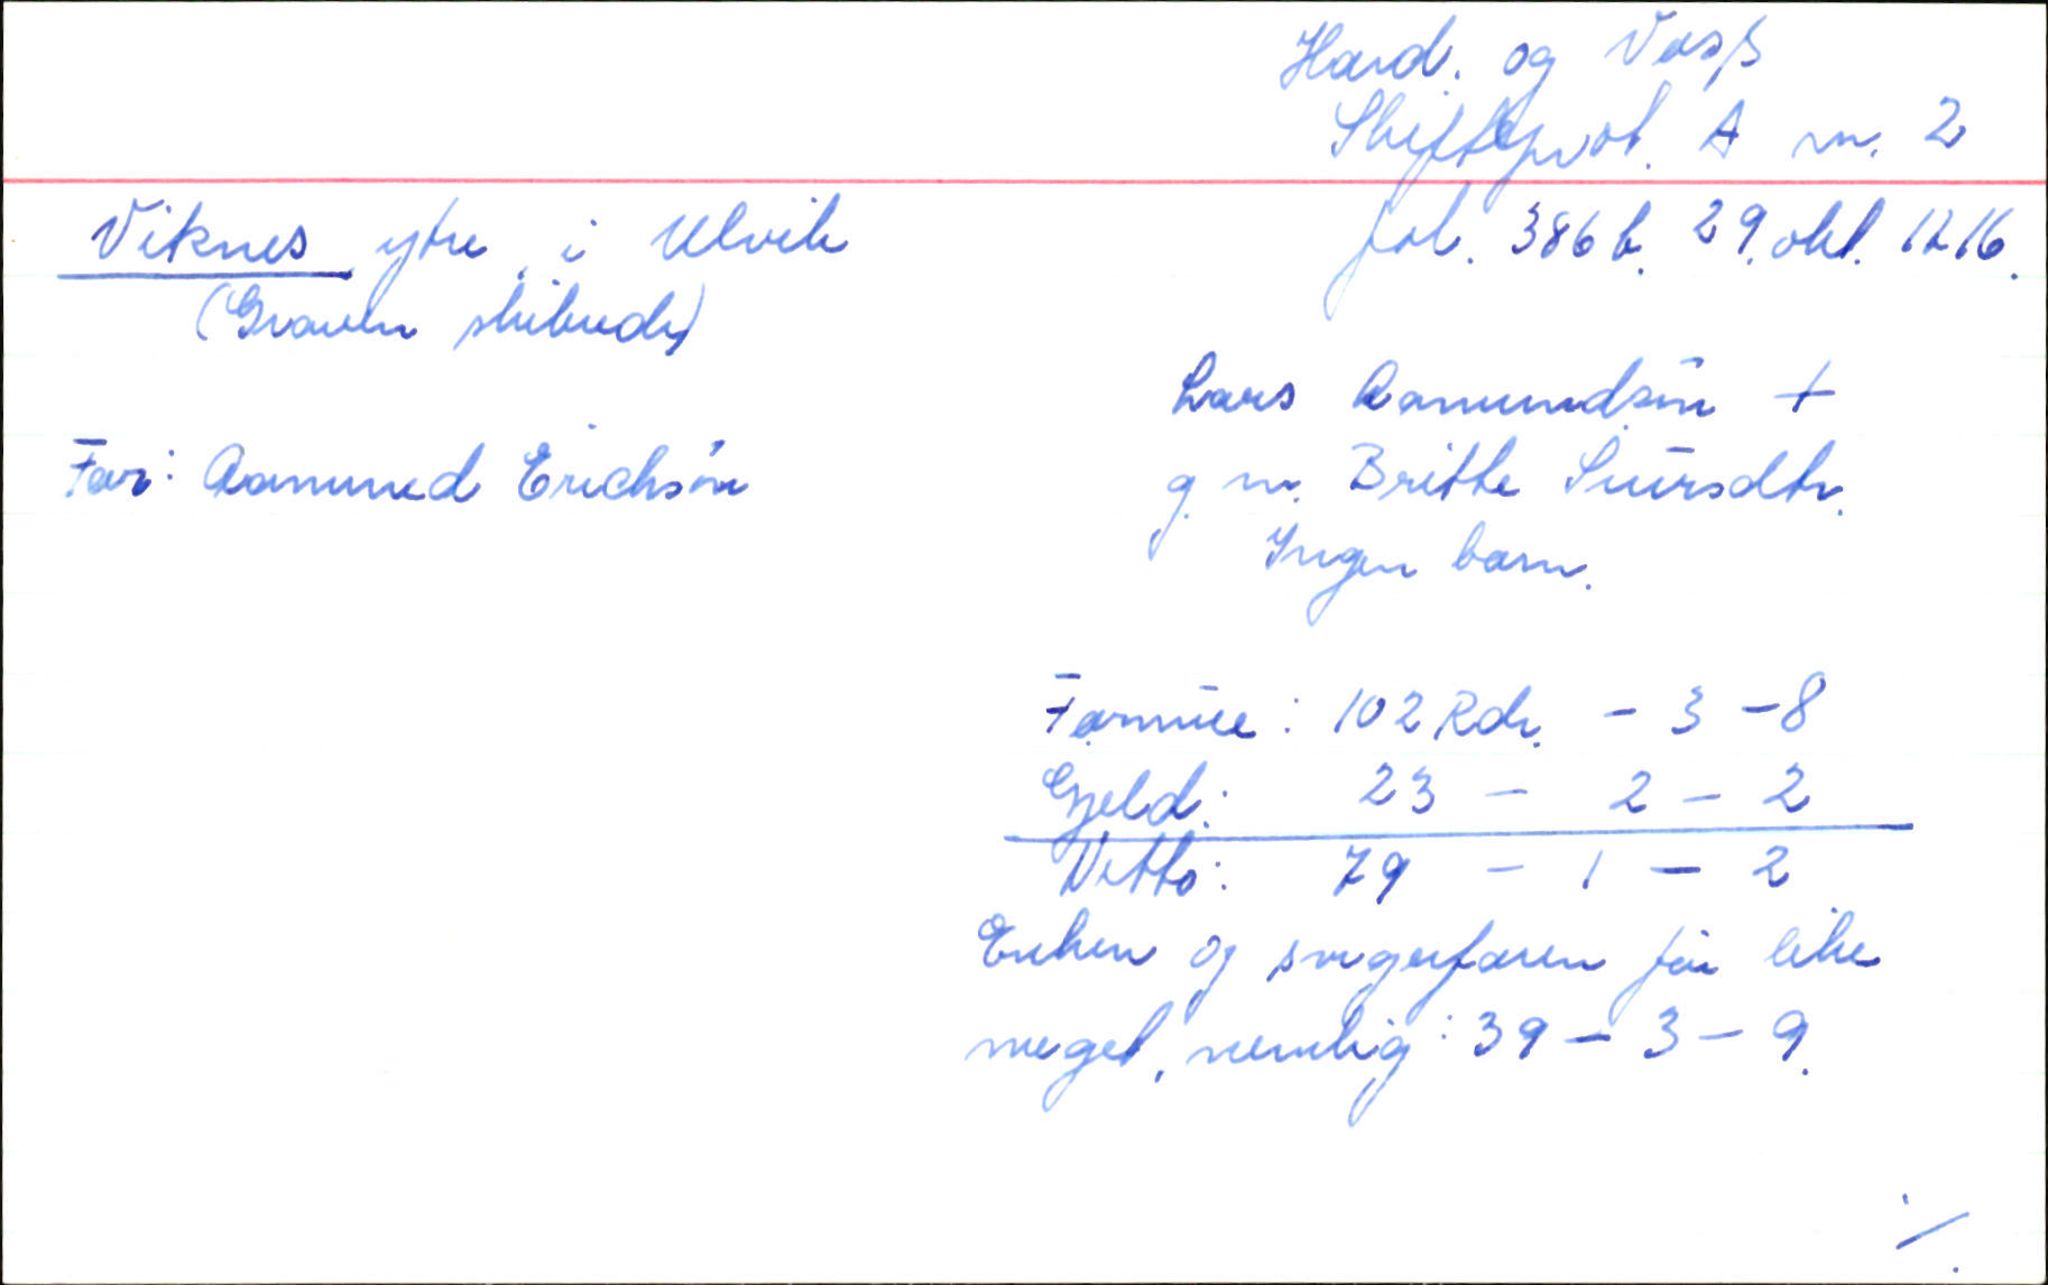 Hard. og Voss
Skifteprot. A nr. 2
Viknes ytre i Ulvik
fol. 386 b. 29. okt. 1716.
(Graven skibrede)
Lars Aamundsøn +
Far: Aamund Erichsøn
g. m. Britte Siursdtr.
Ingen barn.
Formue: 102 Rdr. - 3 - 8
Gjeld: 23 - 2 - 2
Netto: 79 - 1 - 2
Enken og svigerfaren får like
meget, nemlig: 39 - 3 - 9.
./.